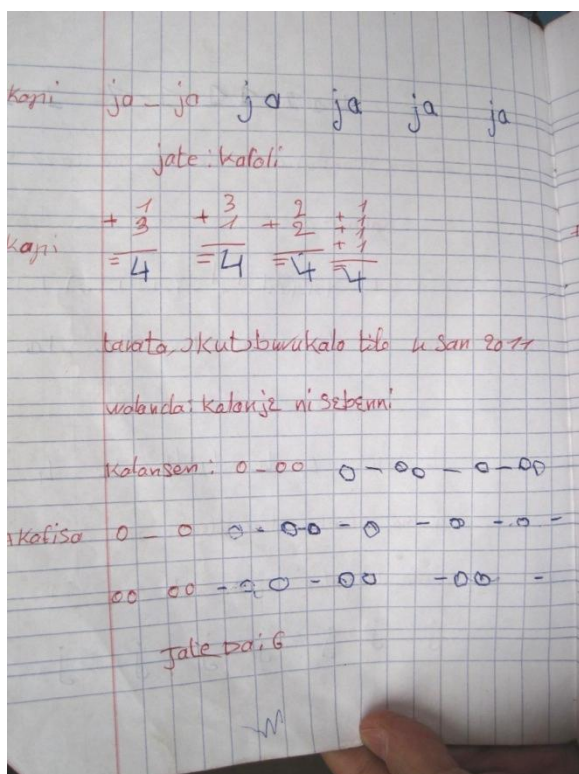 Kopi ja - ja ja ja ja ja
jate : kafoli
Kopi
1 3 2 + 1
+ 3 + 1 + 2 + 1
+ 1
+ 1
= 4 = 4 = 4 = 4
tarata ɔkutɔburukalo tile 4 san 2011
walanda : kalanjɛ ni sɛbɛnni
Kalansen : o - oo o - oo - o - oo
o - o o - o-o - o - o - o -
oo oo - oo - oo - oo -
Jate da : 6